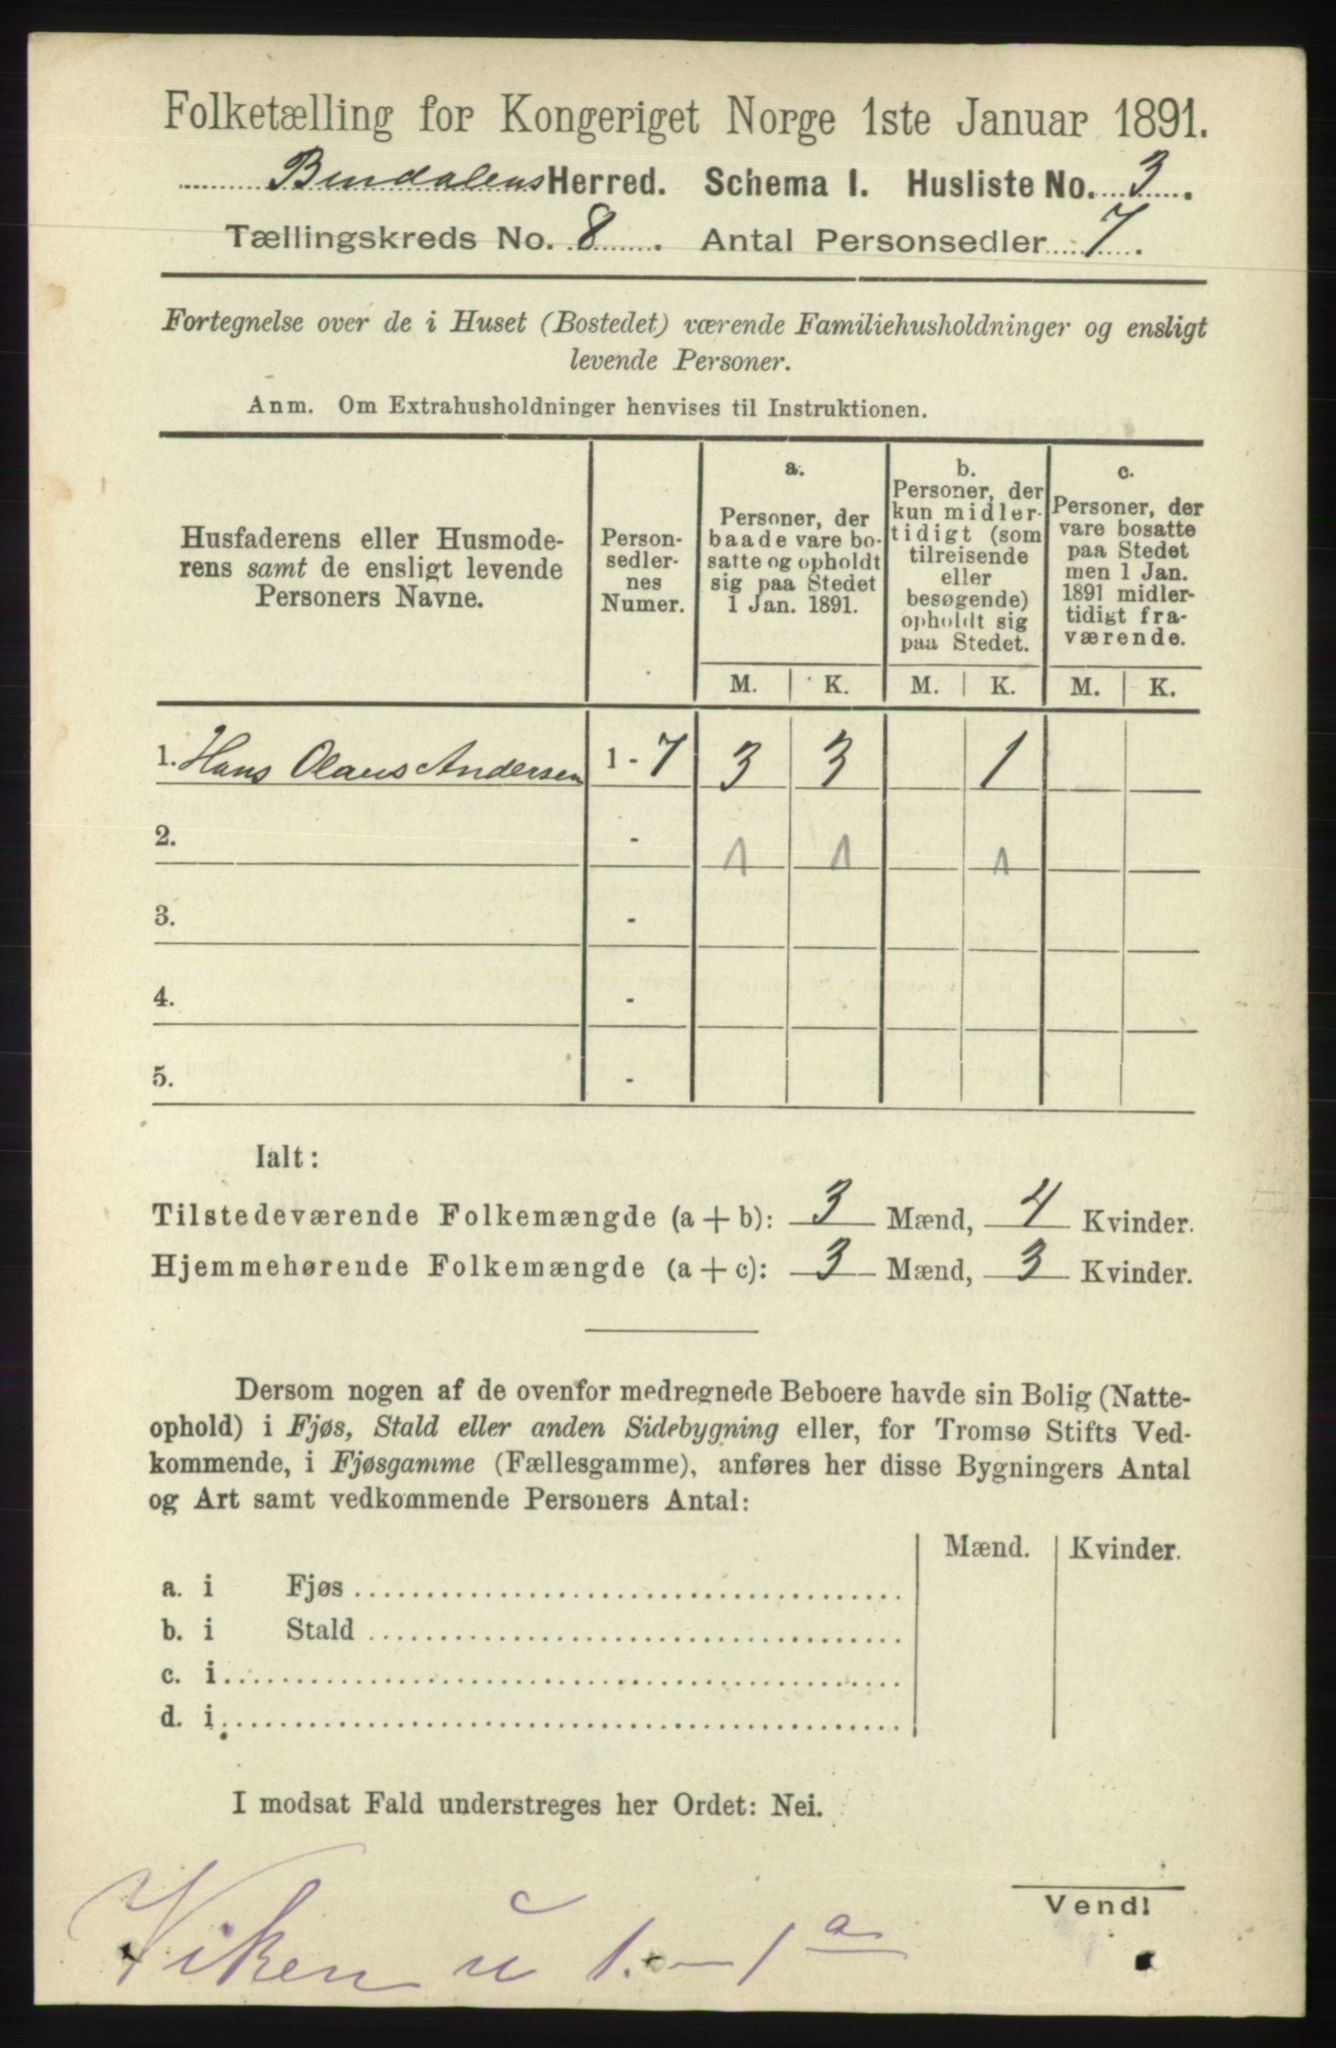 Folketælling for Kongeriget Norge 1ste Januar 1891.
Bindalens Herred. Schema I. Husliste No. 3.
Tællingskreds No. 8. Antal Personsedler 7.
Fortegnelse over de i Huset (Bostedet) værende Familiehusholdninger og ensligt
levende Personer.
Anm. Om Extrahusholdninger henvises til Instruktionen.
Husfaderens eller Husmode-
rens samt de ensligt levende
Personers Navne.
Person-
sedler-
nes
Numer.
a.
Personer, der
baade vare bo-
satte og opholdt
sig paa Stedet
1 Jan. 1891.
b.
Personer, der
kun midler-
tidigt (som
tilreisende
eller
besøgende)
opholdt sig
paa Stedet.
c.
Personer, der
vare bosatte
paa Stedet
men 1 Jan.
1891 midler-
tidigt fra-
værende.
M. K. M. K. M. K.
1. Hans Olaus Andersen 1 - 7 3 3 1
2. - 1 1 1
3. -
4. -
5. -
Ialt:
Tilstedeværende Folkemængde (a + b): 3 Mænd, 4 Kvinder.
Hjemmehørende Folkemængde (a + c): 3 Mænd, 3 Kvinder.
Dersom nogen af de ovenfor medregnede Beboere havde sin Bolig (Natte-
ophold) i Fjøs, Stald eller anden Sidebygning eller, for Tromsø Stifts Ved-
kommende, i Fjøsgamme (Fællesgamme), anføres her disse Bygningers Antal
og Art samt vedkommende Personers Antal:
Mænd. Kvinder.
a. i Fjøs
b. i Stald
c. i
d. i
I modsat Fald understreges her Ordet: Nei.
Vend!
Viken u 1. - 1 a